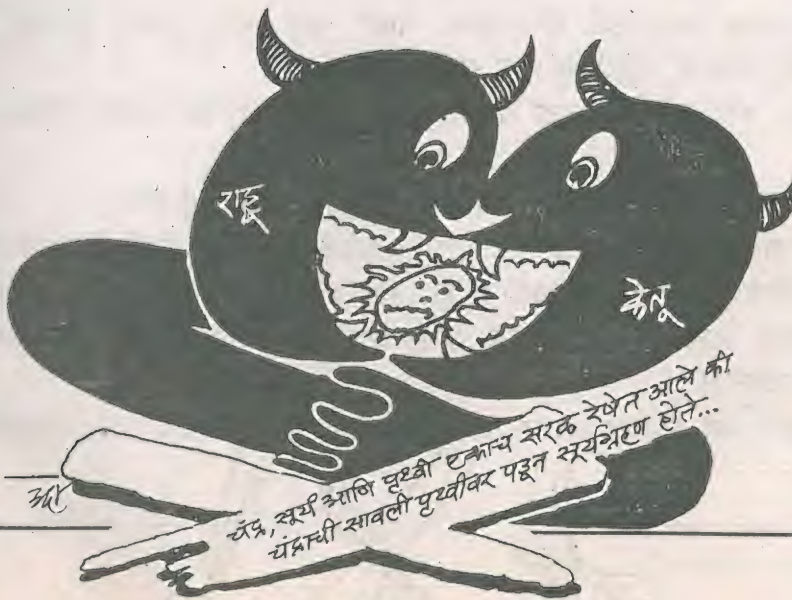 राहू
केतू
चंद्र, सूर्य आणि पृथ्वी एकाच सरळ रेषेत आले की
चंद्राची सावली पृथ्वीवर पडून सूर्यग्रहण होते...